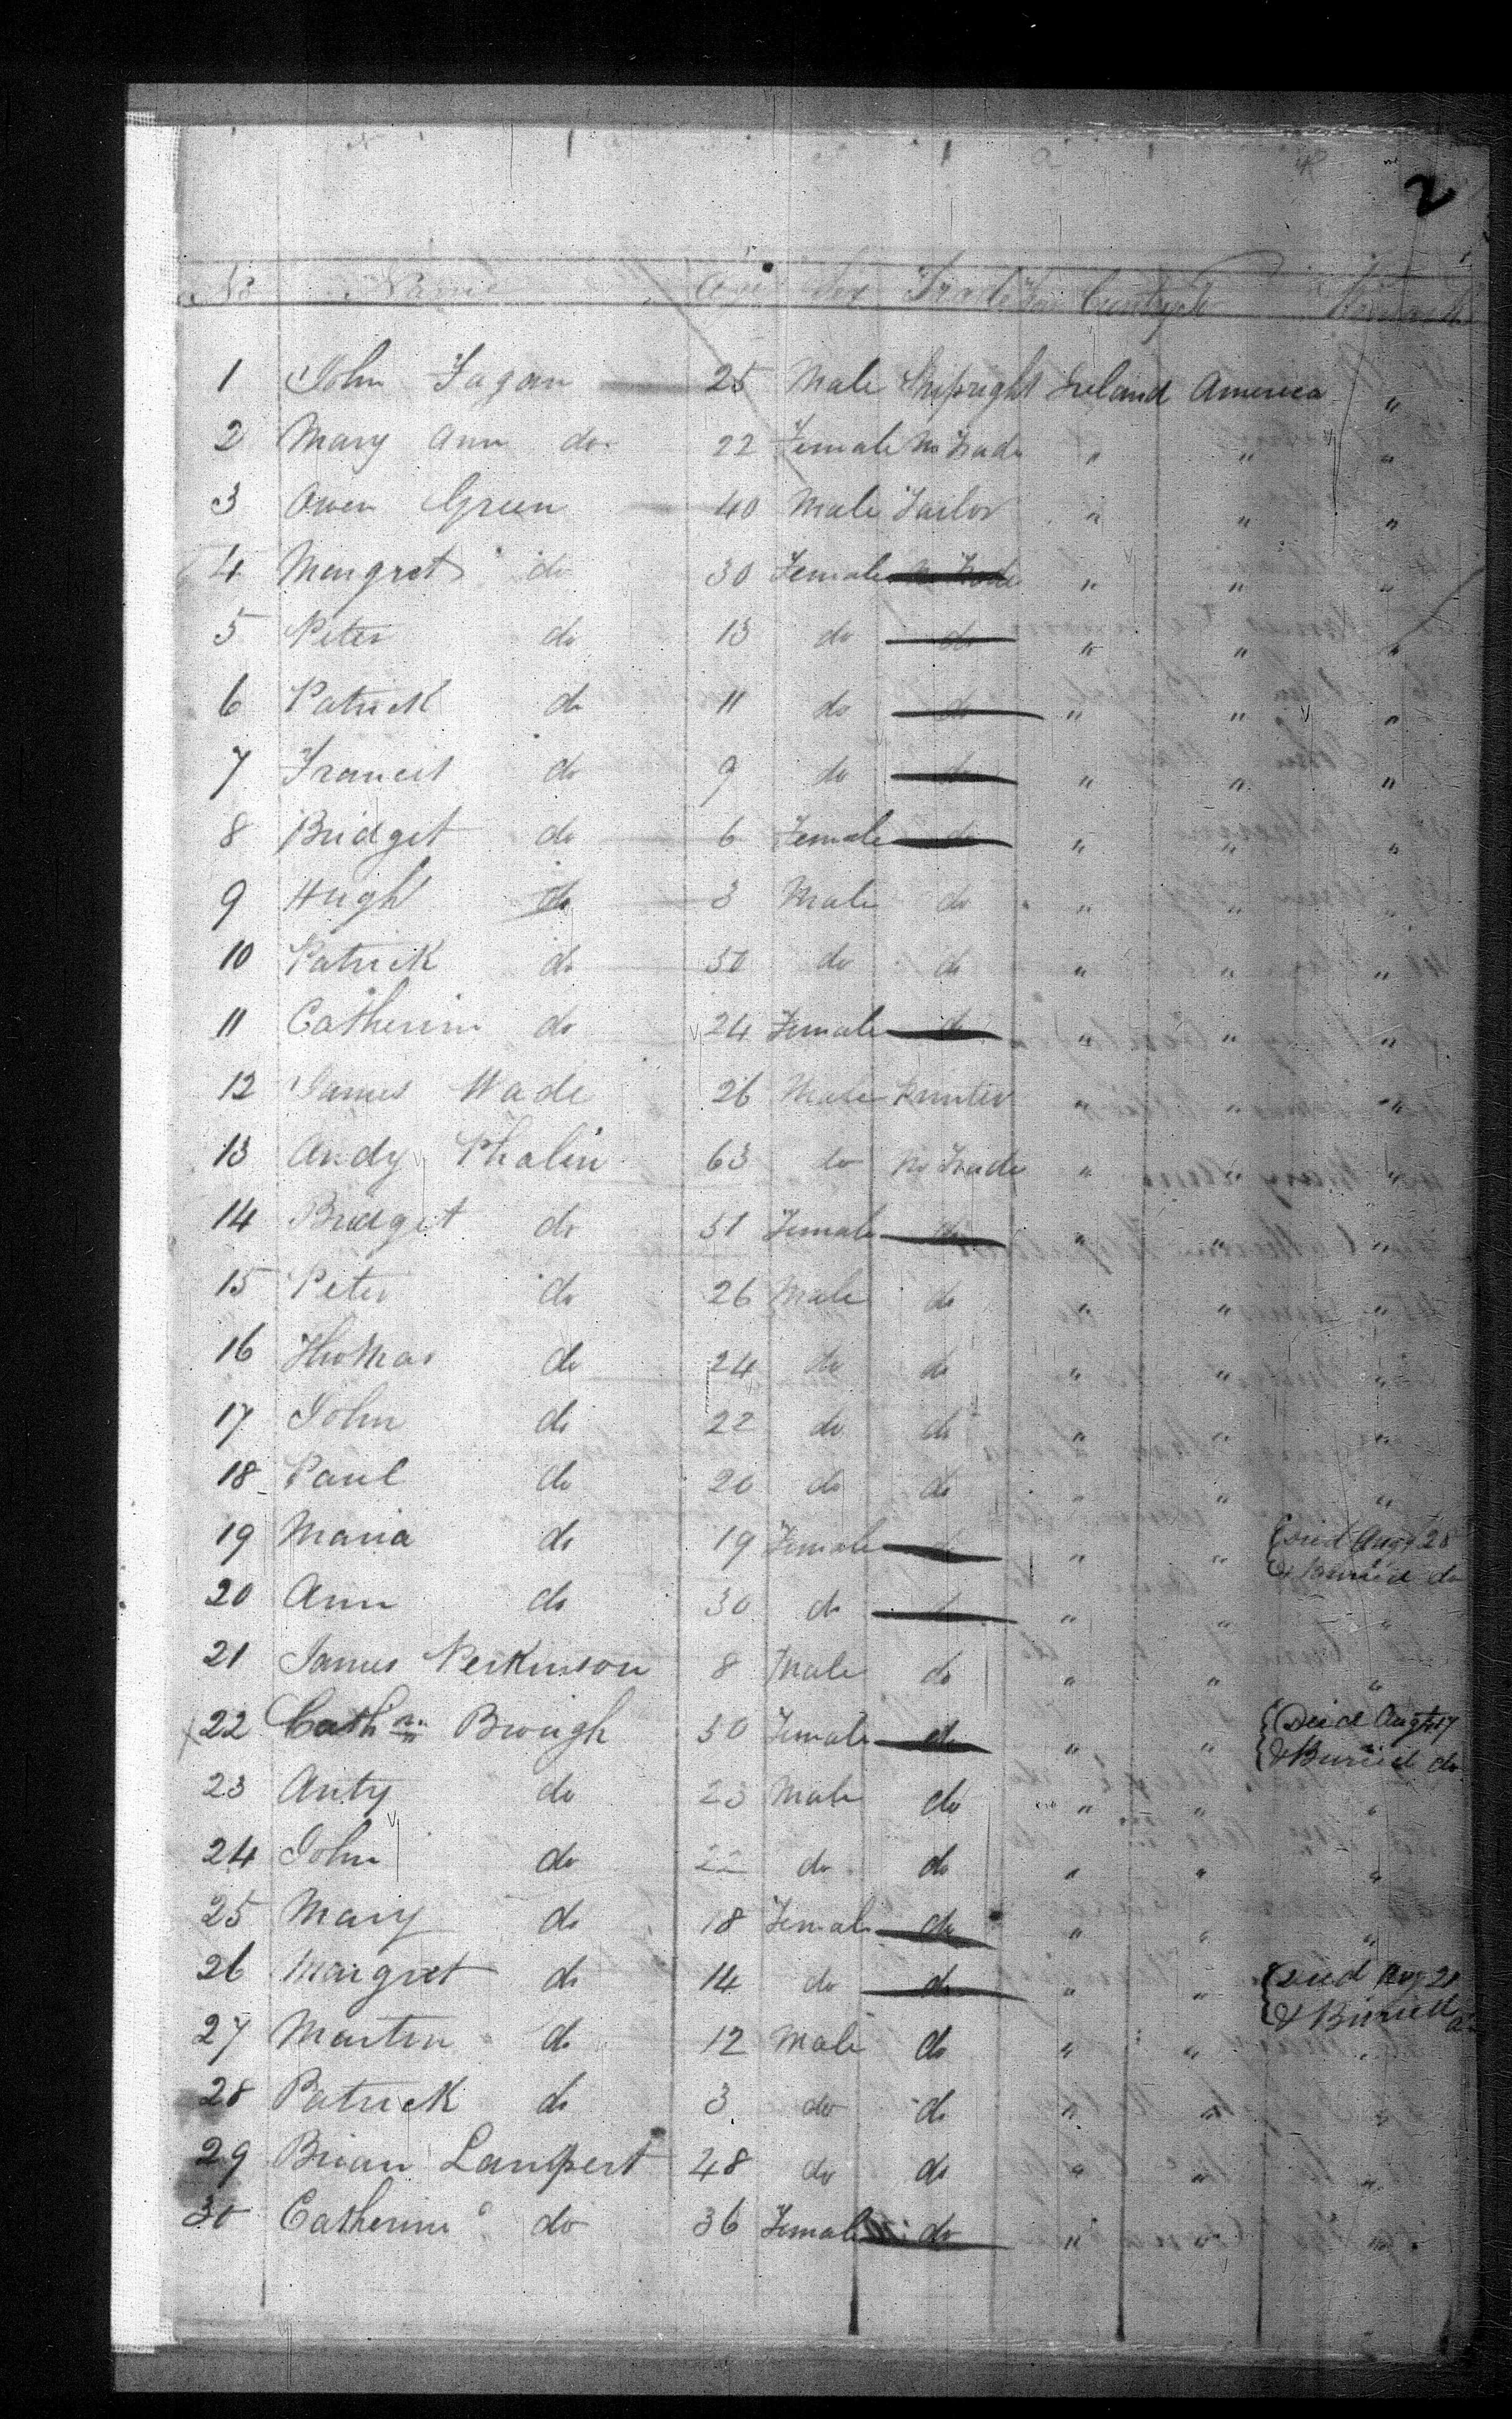 2
No Name Age Sex Trade Country Remarks
1 John Fagan 25 Male Shipright Ireland America "
2 Mary Ann do 22 Female No Trade " " "
3 Owen Green 40 Male Tailor " " "
4 Margret do 30 Female No Trade " " "
5 Peter do 13 do do " " "
6 Patrick do 11 do do " " "
7 Francis do 9 do do " " "
8 Bridget do 6 Female do " " "
9 Hugh do 3 Male do " " "
10 Patrick do 50 do do " " "
11 Catherine do 24 Female do " " "
12 James Wade 26 Male Printer " " "
13 Andy Phalin 63 do No Trade " " "
14 Bridget do 51 Female do " " "
15 Peter do 26 Male do " " "
16 Thomas do 24 do do " " "
17 John do 22 do do " " "
18 Paul do 20 do do " " "
19 Maria do 19 Female do " " Died Augt 28
& Burried do
20 Ann do 30 do do " " "
21 James Perkinson 8 Male do " " "
22 Cathn Brough 50 Female do " " Deid Augt 17
& Buried do
23 Anty do 23 Male do " " "
24 John do 22 do do " " "
25 Mary do 18 Female do " " "
26 Margret do 14 do do " " Died Aug 21
& Buried do
27 Martin do 12 Male do " " "
28 Patrick do 3 do do " " "
29 Brian Lampert 48 do do " " "
30 Catherine do 36 Female do " " "